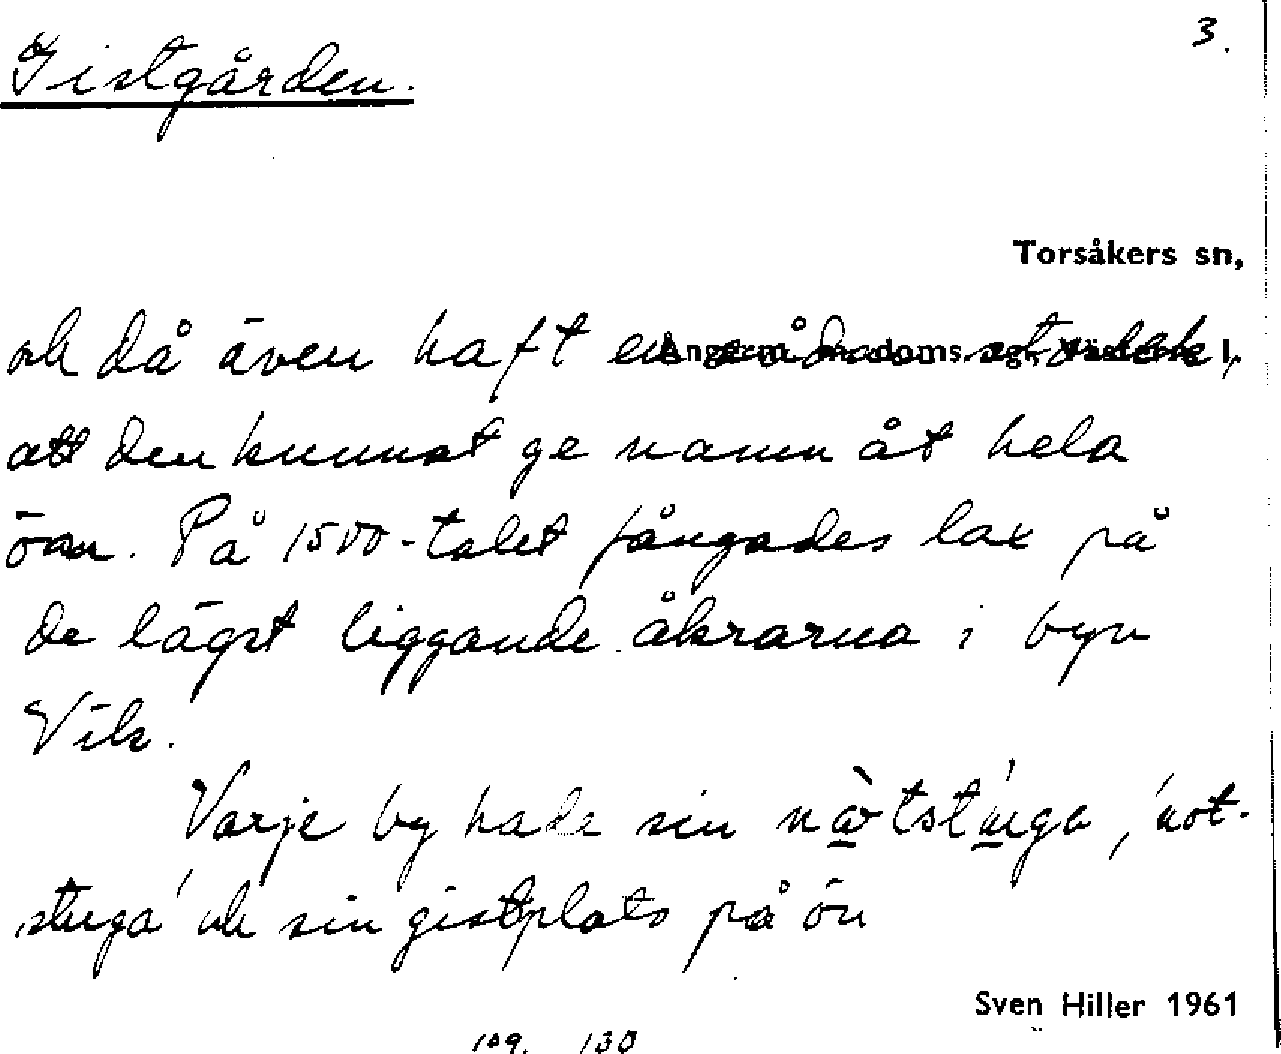 3.
Gistgården.
Torsåkers sn,
och då även haft en sådan storlek,
att den kunnat ge namn åt hela
ön. På 1500-talet fångades lax på
de lägst liggande åkrarna i byn
Vik.
Varje by hade sin, 'not-
stuga' och sin gistplats på ön
Sven Hiller 1961
109. 130